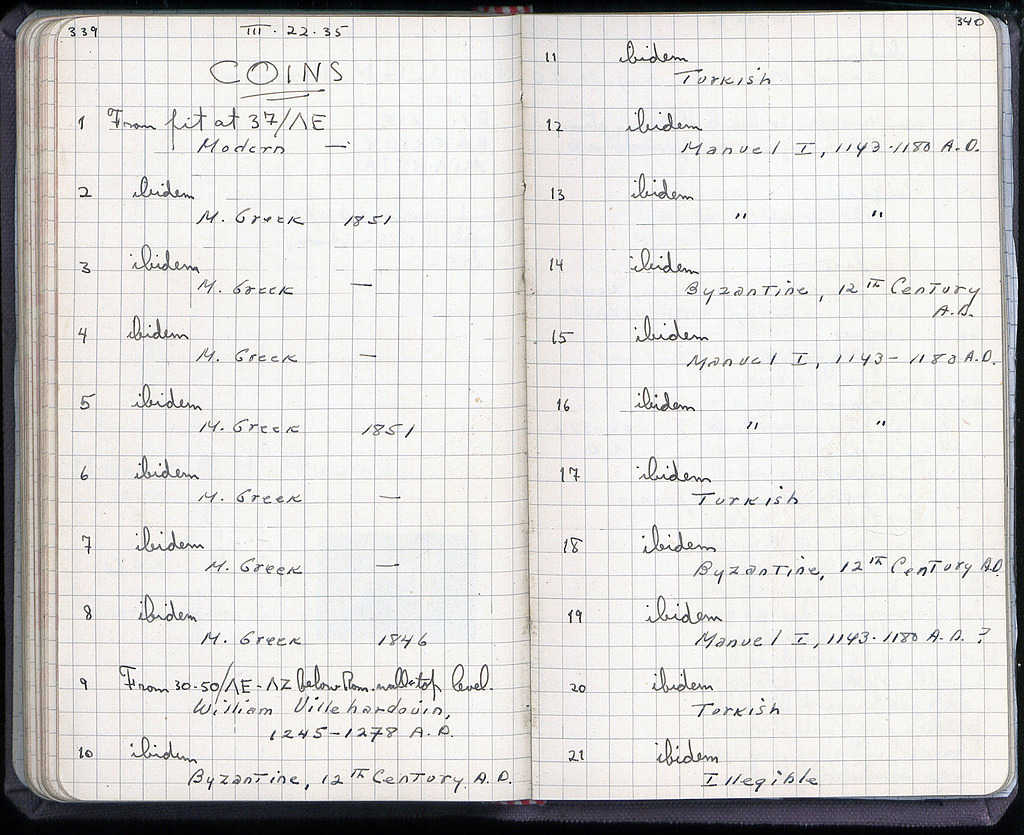 339
III · 22 · 35
COINS
1 From pit at 37/ΛΕ
Modern —
2 ibidem
M. Greek 1851
3 ibidem
M. Greek —
4 ibidem
M. Greek —
5 ibidem
M. Greek 1851
6 ibidem
M. Greek —
7 ibidem
M. Greek —
8 ibidem
M. Greek 1846
9 From 30-50/ΛΕ-ΛΖ below Rom. wall top level.
William Villehardouin,
1245-1278 A.D.
10 ibidem
Byzantine, 12TH Century A.D.
340
11 ibidem
Turkish
12 ibidem
Manuel I, 1143-1180 A.D.
13 ibidem
" "
14 ibidem
Byzantine, 12TH Century
A.D.
15 ibidem
Manuel I, 1143-1180 A.D.
16 ibidem
" "
17 ibidem
Turkish
18 ibidem
Byzantine, 12TH Century A.D.
19 ibidem
Manuel I, 1143-1180 A.D. ?
20 ibidem
Turkish
21 ibidem
Illegible